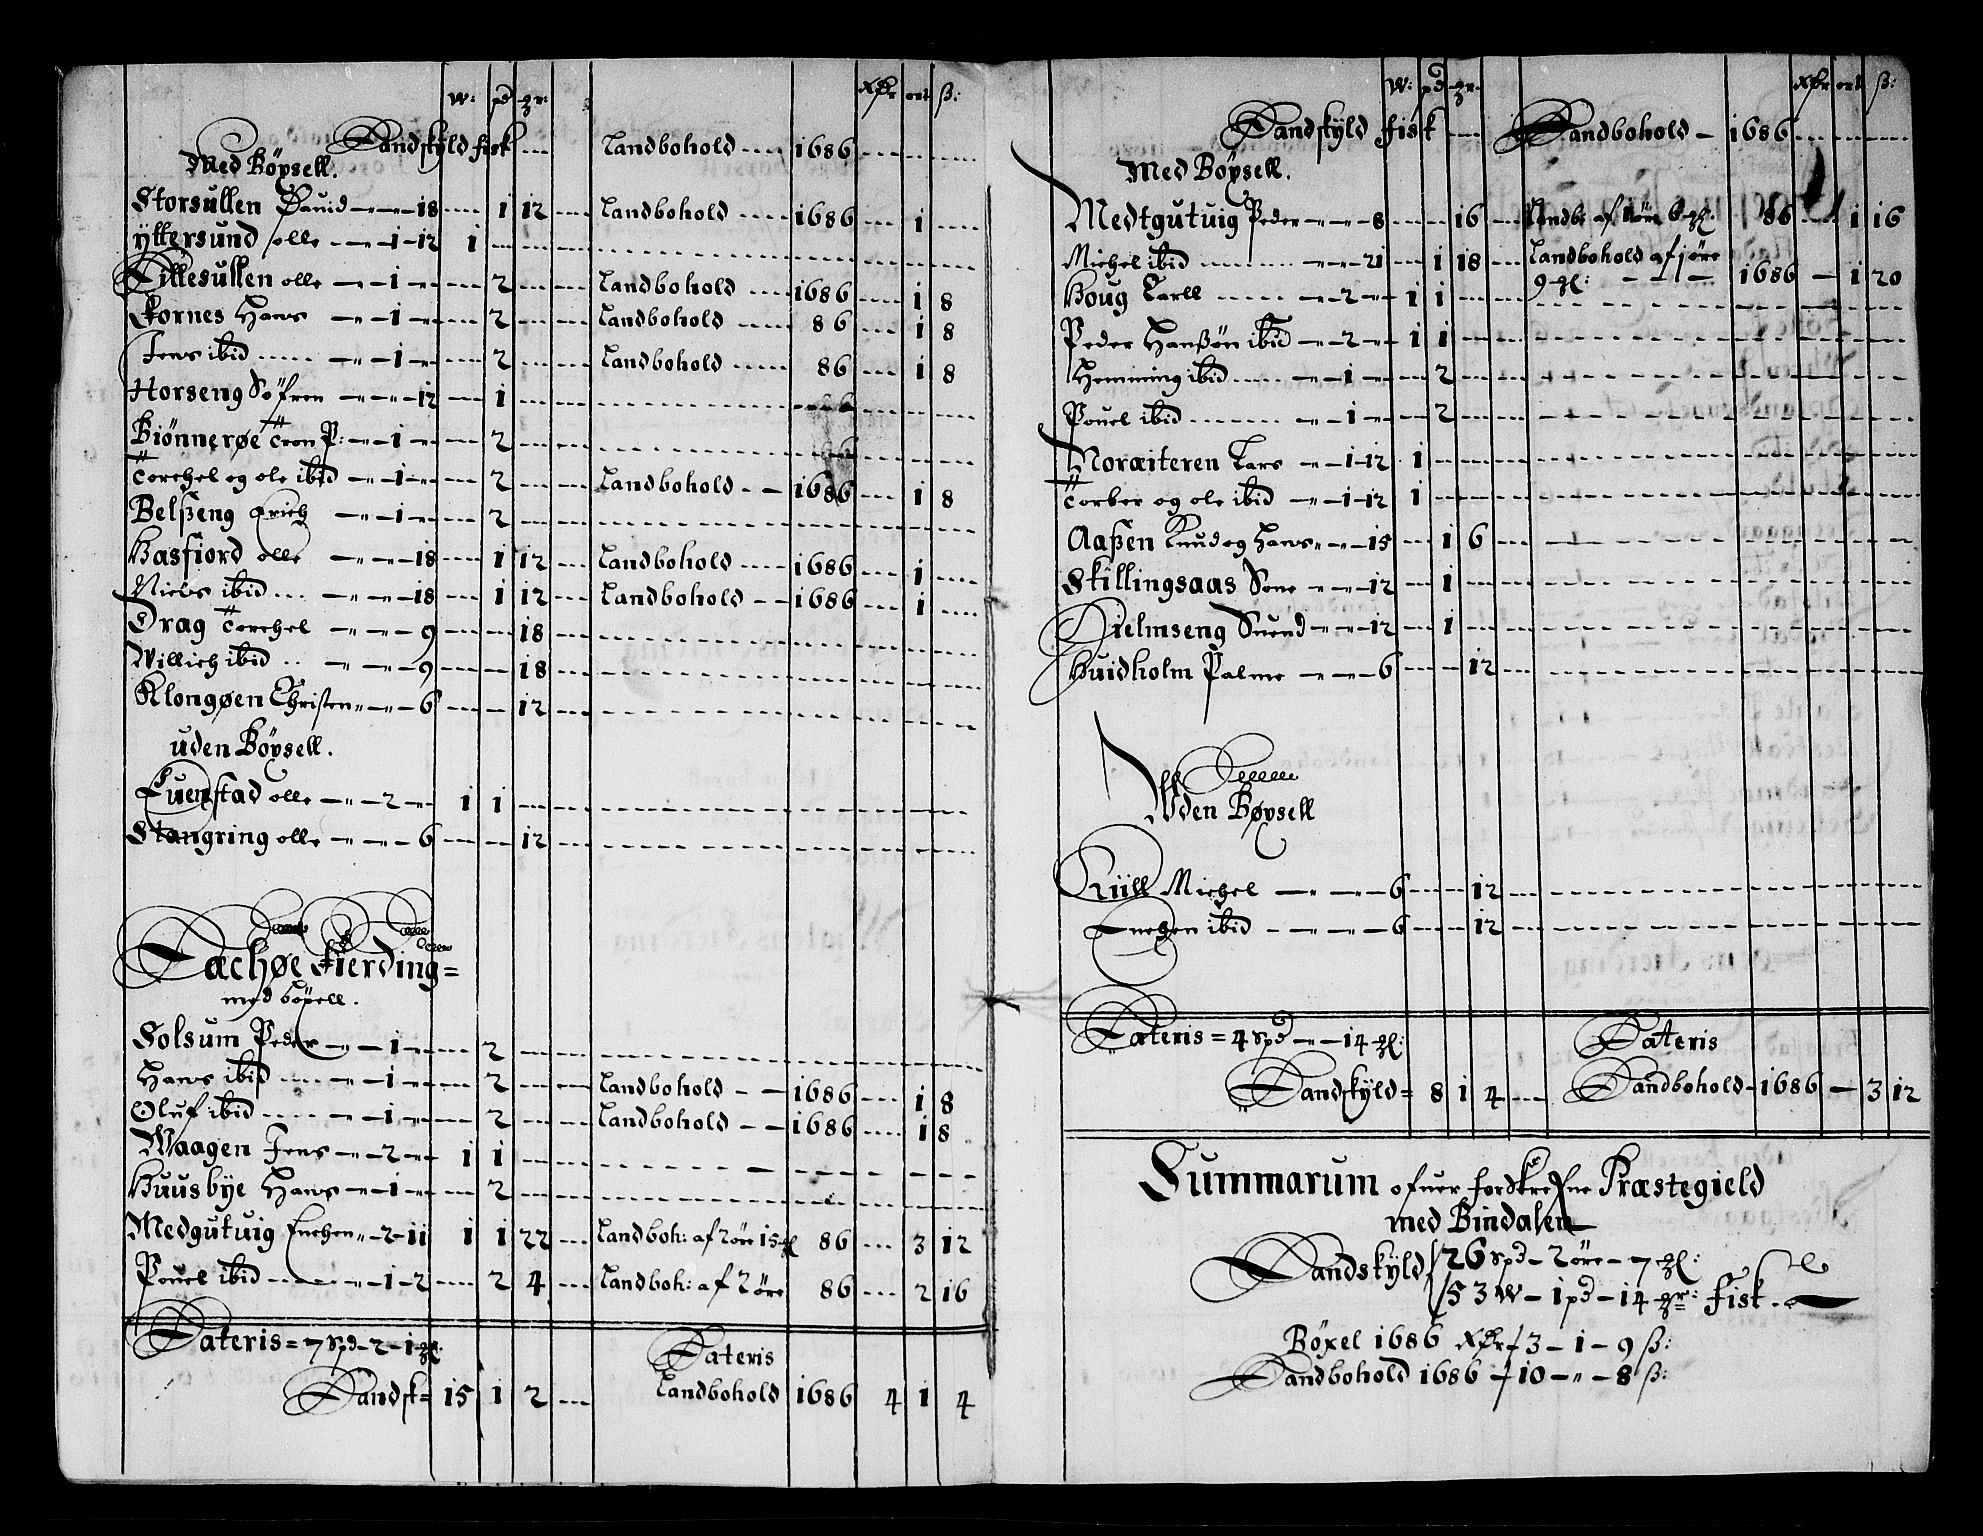 W: pd gr: Rdr ort ß:
Landskyld fisk Landbohold 1686
Med Böxsell.
Storsullen Dauid - 18 1 12 Landbohold 1686 1
yttersund olle 1 - 12 1
Lillesullen olle 1 2 Landbohold 1686 1 8
Kornes Hans 1 2 Landbohold 86 1 8
Jens ibid 1 2 Landbohold 86 1 8
Horseng Söfren 12 1
Biönnerøe Tron P: 1 2
Torchel og ole ibid 1 2 Landbohold 1686 1 8
Belßeng Erich 1 2
Hasfiord olle 18 1 12 Landbohold 1686 1
Niels ibid 18 1 12 Landbohold 1686 1
Drag Torchel 9 18
Willich ibid 9 18
Klongøen Christen 6 12
uden Böxsell.
Luenstad olle 2 1 1
Stangring olle 6 12
Lechøe Fierding =
med böxell.
Solsum Peder 1 2
Hans ibid 1 2 Landbohold 1686 1 8
Oluf ibid 1 2 Landbohold 1686 1 8
Waagen Jens 2 1 1
Huusbye Hans 1 2
Medgutuig Enchen 2 - 11 1 1 22 Landboh: af 2 öre 15 gl 86 3 12
Pouel ibid 1 - 2 2 4 Landboh: af 2 öre 86 2 16
Lateris = 7 Spd - 2 - 1 gl: Lateris
Landsk = 15 1 2 Landbohold 1686 4 1 4
W: pd gr. Rdr ort ß:
Landskyld fisk Landbohold - 1686
Med Böxsell.
Medtgutuig Peder 8 16 Landbo af 1 öre 6 gl: 86 1 16
Michel ibid 21 1 18 Landbohold af 1 øre
9 gl: 1686 1 20
Houg Larll 2 1 1
Peder Hanßön ibid 2 1 1
Hemming ibid 1 2
Pouel ibid 1 2
Noræiteren Lars 1 - 12 1
Torber og ole ibid 1 - 12 1
Aaßen Knud og Hans 15 1 6
Skillingsaas Sone 12 1
Hielmseng Suend 12 1
Huidholm Palme 6 12
Uden Bøxsell
Riill Michel 6 12
Enchen ibid 6 12
Lateris = 4 Spd - 14 gl: Lateris
Landskyld = 8 1 4 Landbohold - 1686 3 12
Summarum ofuer forskrefne Præstegield
med Bindalen
Landskyld 26 Spd - 2 öre - 7 gl:
53 W - 1 pd - 14 gr: Fisk.
Böxel 1686 Rdr 3 - 1 - 9 ß:
Landbohold 1686 - 10 - " - 8 ß: